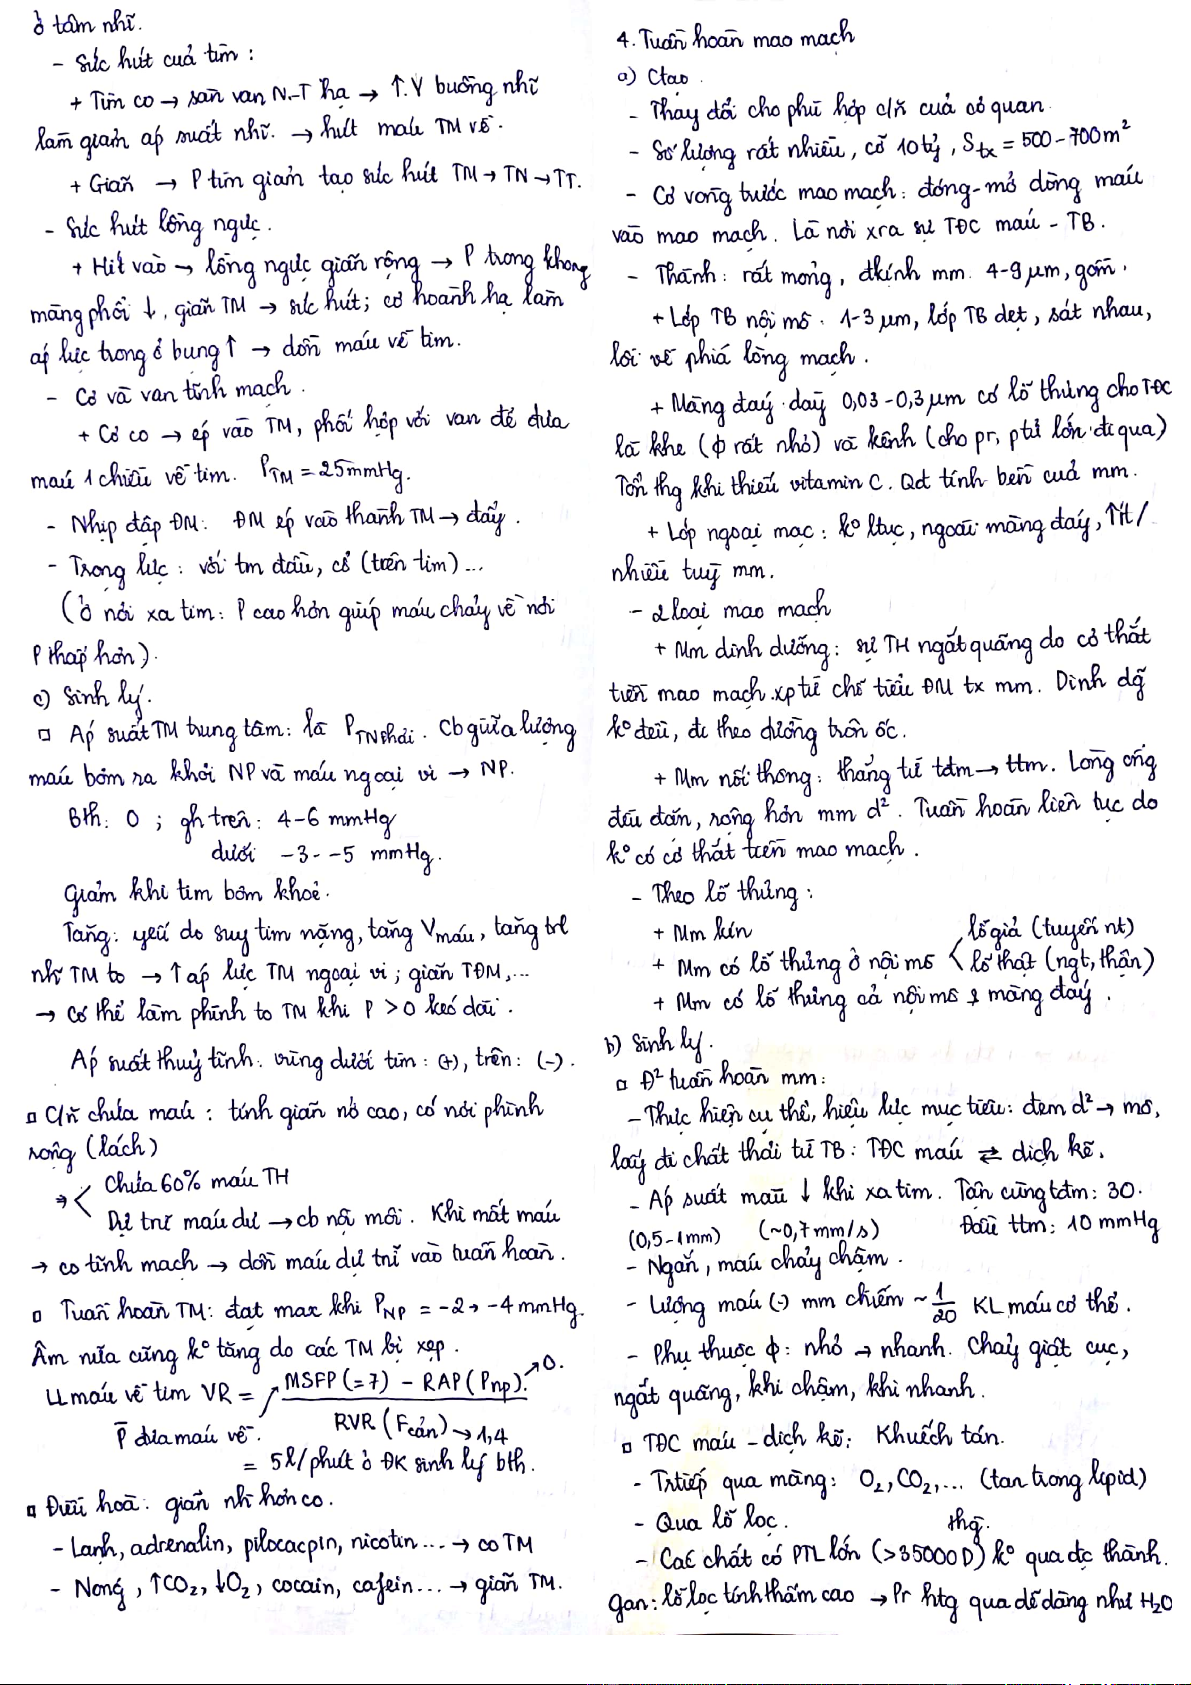 ở tâm nhĩ.
- Sức hút của tim :
+ Tim co → sàn van N-T hạ → ↑.V buồng nhĩ
làm giảm áp suất nhĩ. → hút máu TM về.
+ Giãn → P tim giảm tạo sức hút TM→TN→TT.
- Sức hút lồng ngực.
+ Hít vào → lồng ngực giãn rộng → P trong khoang
màng phổi ↓, giãn TM → sức hút; cơ hoành hạ làm
áp lực trong ổ bụng ↑ → dồn máu về tim.
- Cơ và van tĩnh mạch.
+ Cơ co → ép vào TM, phối hợp với van để đưa
máu 1 chiều về tim. P_TM = 25mmHg.
- Nhịp đập ĐM: ĐM ép vào thành TM → đẩy.
- Trọng lực: với tm đầu, cổ (trên tim)...
(Ở nơi xa tim: P cao hơn giúp máu chảy về nơi
P thấp hơn).
c) Sinh lý.
□ Áp suất TM trung tâm: là P_TN phải. Cb giữa lượng
máu bơm ra khỏi NP và máu ngoại vi → NP.
Bth: 0 ; gh trên: 4-6 mmHg
dưới -3 - -5 mmHg.
Giảm khi tim bơm khoẻ.
Tăng: yếu do suy tim nặng, tăng V_máu, tăng trl
nh TM to → ↑ áp lực TM ngoại vi; giãn TĐM,...
→ Có thể làm phình to TM khi P > 0 kéo dài.
Áp suất thuỷ tĩnh: vùng dưới tim: (+), trên: (-).
□ C/n chứa máu : tính giãn nở cao, có nơi phình
rộng (lách)
⇒ < Chứa 60% máu TH
Dự trữ máu dư → cb nội môi. Khi mất máu
→ co tĩnh mạch → dồn máu dự trữ vào tuần hoàn.
□ Tuần hoàn TM: đạt max khi P_NP = -2 → -4 mmHg.
Âm nữa cũng k° tăng do các TM bị xẹp.
LL máu về tim VR = MSFP (=7) - RAP (Pnp) ↗ 0.
P̄ đưa máu về. RVR (F cản) → 1,4
= 5l/phút ở ĐK sinh lý bth.
□ Điều hoà: giãn nh hơn co.
- Lạnh, adrenalin, pilocacpin, nicotin... → co TM
- Nóng, ↑CO2, ↓O2, cocain, cafein... → giãn TM.
4. Tuần hoàn mao mạch
a) Ctạo.
- Thay đổi cho phù hợp c/n của cơ quan.
- Số lượng rất nhiều, cỡ 10 tỷ, S_tx = 500-700m²
- Cơ vòng trước mao mạch: đóng-mở dòng máu
vào mao mạch. Là nơi xra sự TĐC máu - TB.
- Thành: rất mỏng, đkính mm. 4-9 μm, gồm.
+ Lớp TB nội mô. 1-3 μm, lớp TB dẹt, sát nhau,
lồi về phía lòng mạch.
+ Màng đáy. dày 0,03-0,3 μm có lỗ thủng cho TĐC
là khe (φ rất nhỏ) và kênh (cho pr, ptử lớn đi qua)
Tổn thg khi thiếu vitamin C. Qđ tính bền của mm.
+ Lớp ngoại mạc: k° ltục, ngoài màng đáy, ít/
nhiều tuỳ mm.
- 2 loại mao mạch
+ Mm dinh dưỡng: sự TH ngắt quãng do cơ thắt
tiền mao mạch. xp từ chỗ tiểu ĐM tx mm. Dinh dg
k° đều, đi theo đường trôn ốc.
+ Mm nối thông: thẳng từ tđm → ttm. Lòng ống
đều đặn, rộng hơn mm d². Tuần hoàn liên tục do
k° có cơ thắt trên mao mạch.
- Theo lỗ thủng:
+ Mm kín
+ Mm có lỗ thủng ở nội mô < lỗ giả (tuyến nt)
lỗ thật (ngt, thận)
+ Mm có lỗ thủng cả nội mô & màng đáy.
b) Sinh lý.
□ Đ² tuần hoàn mm:
- Thực hiện cụ thể, hiệu lực mục tiêu: đem d² → mô,
lấy đi chất thải từ TB: TĐC máu ⇌ dịch kẽ.
- Áp suất máu ↓ khi xa tim. Tận cùng tđm: 30.
Đầu ttm: 10 mmHg
(0,5-1mm) (~0,7mm/s)
- Ngắn, máu chảy chậm.
- Lượng máu (-) mm chiếm ~ 1/20 KL máu cơ thể.
- Phụ thuộc φ: nhỏ → nhanh. Chảy giật cục,
ngắt quãng, khi chậm, khi nhanh.
□ TĐC máu - dịch kẽ: Khuếch tán.
- Trtiếp qua màng: O2, CO2,... (tan trong lipid)
- Qua lỗ lọc. thg.
- Các chất có PTL lớn (>35000D) k° qua đc thành.
gan: lỗ lọc tính thấm cao → Pr htg qua dễ dàng như H2O